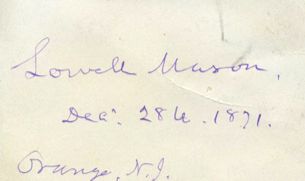 Lowell Mason.
Decr. 28th. 1871.
Orange, N.J.